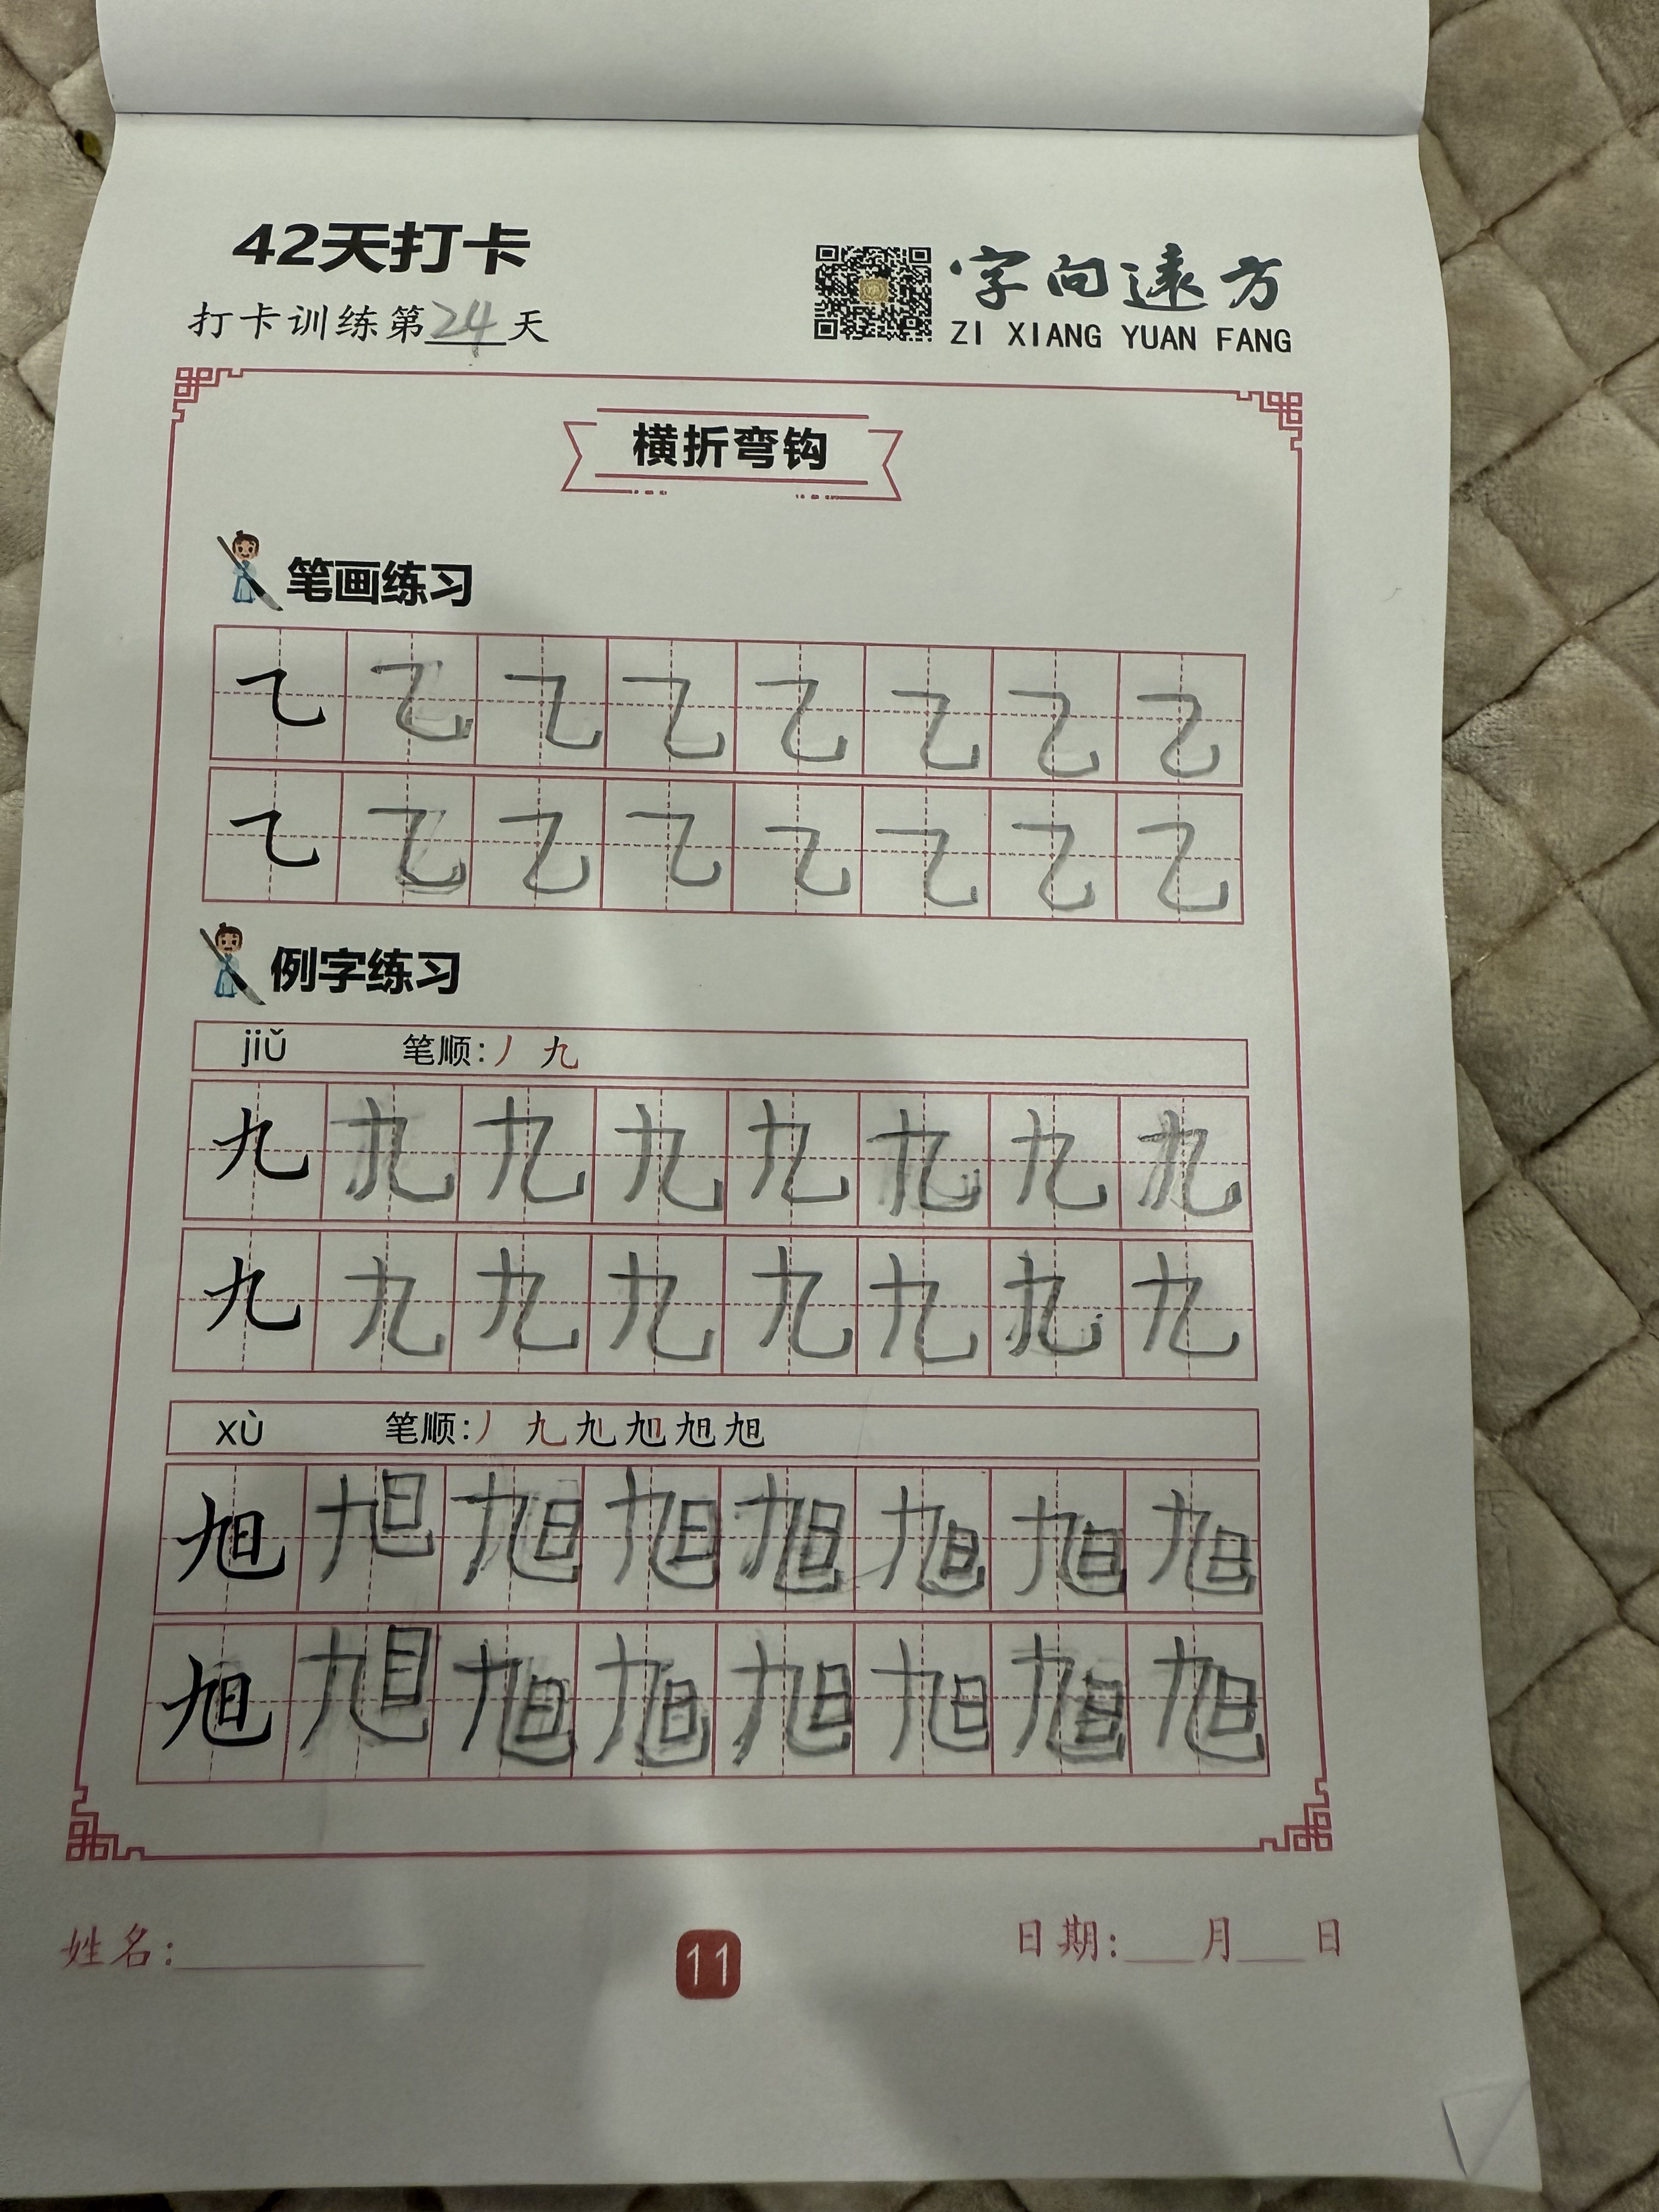 42天打卡
打卡训练第24天
字向遠方
ZI XIANG YUAN FANG
横折弯钩
笔画练习
㇈ ㇈ ㇈ ㇈ ㇈ ㇈ ㇈ ㇈
㇈ ㇈ ㇈ ㇈ ㇈ ㇈ ㇈ ㇈
例字练习
jiǔ 笔顺:丿 九
九 九 九 九 九 九 九 九
九 九 九 九 九 九 九 九
xù 笔顺:丿 九 九 旭 旭 旭
旭 旭 旭 旭 旭 旭 旭 旭
旭 旭 旭 旭 旭 旭 旭 旭
姓名:
11
日期: 月 日